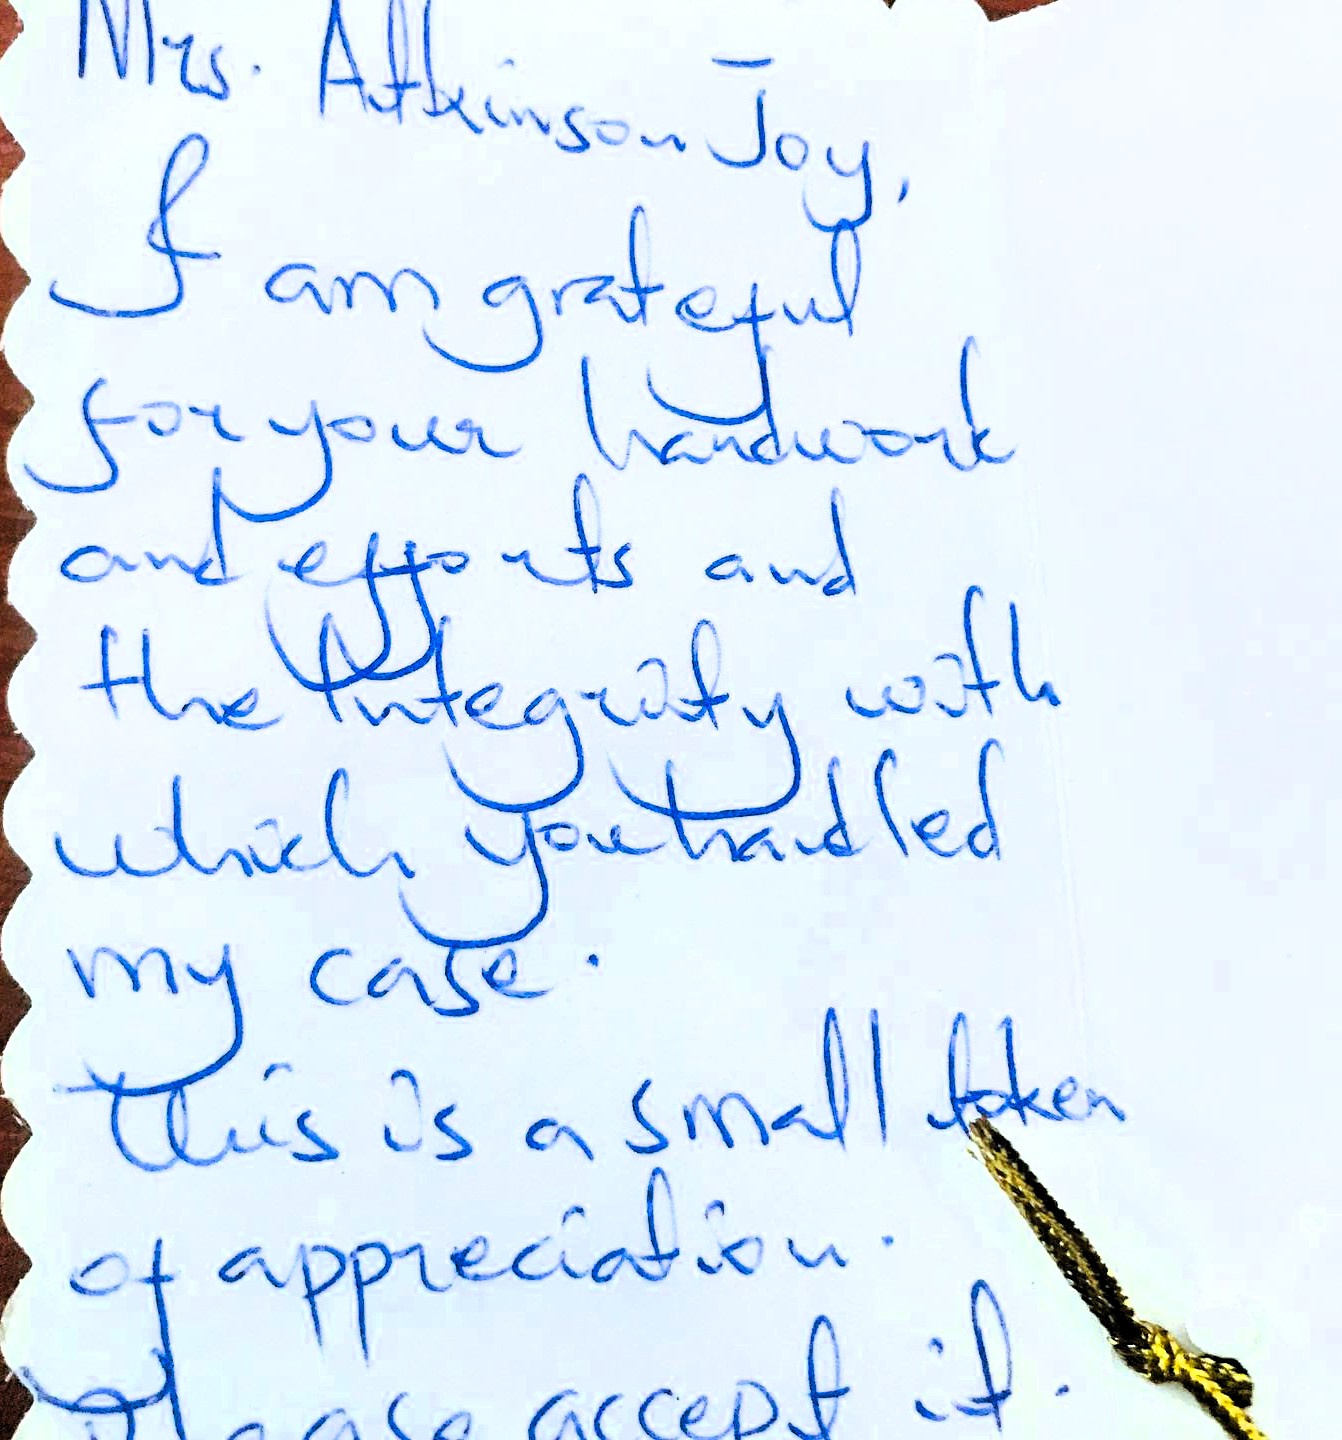 Mrs. Atkinson Joy,
I am grateful
for your handwork
and efforts and
the Integrity with
which you handled
my case.
This is a small token
of appreciation.
Please accept it.